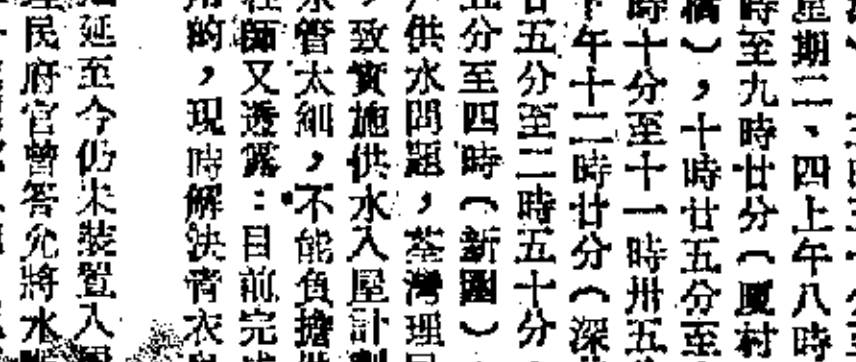 星期二、四上午八時
時至九時廿分（厦村
橋），十時廿五分至
時十分至十一時卅五
下午十二時廿分（深
廿五分至二時五十分
五分至四時（新圍）
戶供水問題，荃灣理民
，致實施供水入屋計劃
水管太細，不能負擔供
程師又透露：目前完成
用的，現時解決青衣
延至今仍未裝置入
理民府官曾答允將水喉